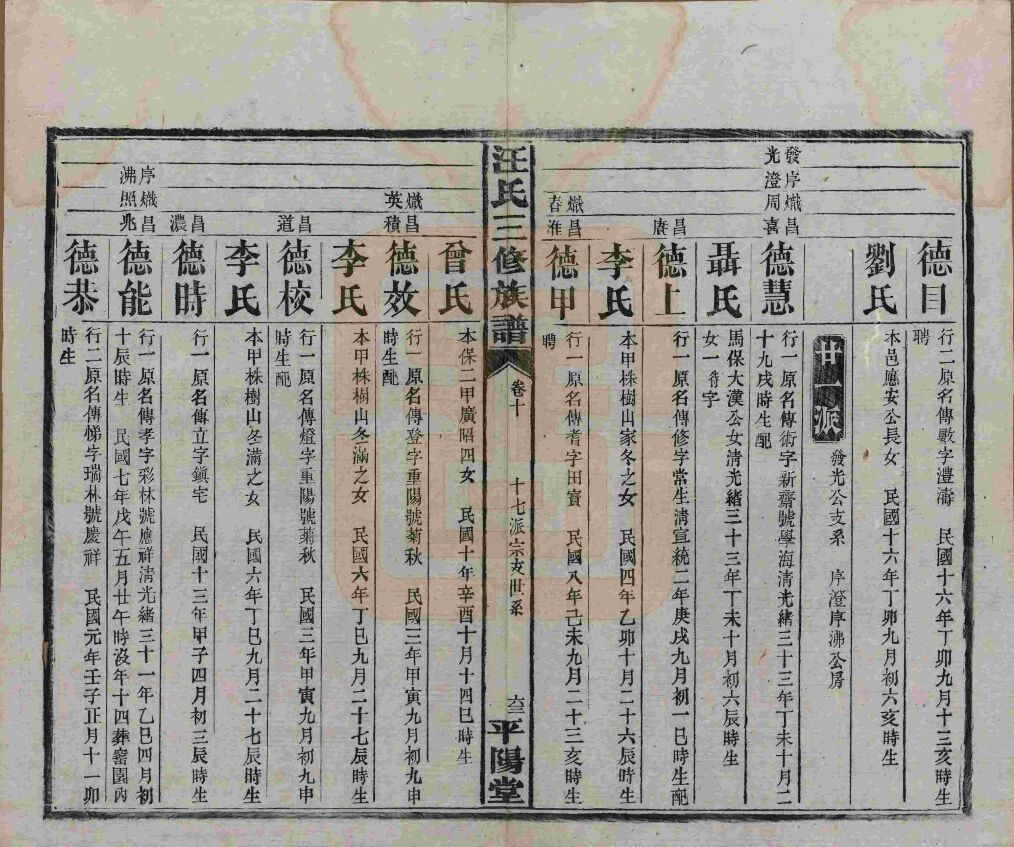 德目
行二原名傳數字澧濤　民國十六年丁卯九月十三亥時生
聘
劉氏
本邑應安公長女　民國十六年丁卯九月初六亥時生
廿一派
發光公支系　序澄序沸公房
發序熾昌
光澄周喜
德慧
行一原名傳術字新齋號學海清光緒三十三年丁未十月二
十九戌時生配
聶氏
馬保大漢公女清光緒三十三年丁未十月初六辰時生
女一　待字
昌
賡
德上
行一原名傳修字常生清宣統二年庚戌九月初一巳時生配
李氏
本甲株樹山家冬之女　民國四年乙卯十月二十六辰時生
熾昌
春淮
德甲
行一原名傳耆字田寶　民國八年己未九月二十三亥時生
聘
汪氏三修族譜
卷十
十七派宗支世系
六三
平陽堂
曾氏
本保二甲廣昭四女　民國十年辛酉十月十四巳時生
熾昌
英積
德效
行一原名傳登字重陽號菊秋　民國三年甲寅九月初九申
時生配
李氏
本甲株樹山冬滿之女　民國六年丁巳九月二十七辰時生
昌
道
德校
行一原名傳燈字重陽號菊秋　民國三年甲寅九月初九申
時生配
李氏
本甲株樹山冬滿之女　民國六年丁巳九月二十七辰時生
昌
濃
德時
行一原名傳立字鎮宅　民國十三年甲子四月初三辰時生
序熾昌
沸照兆
德能
行一原名傳孝字彩林號應祥清光緒三十一年乙巳四月初
十辰時生　民國七年戊午五月廿午時沒年十四葬窰園內
德恭
行二原名傳悌字瑞林號慶祥　民國元年壬子正月十一卯
時生